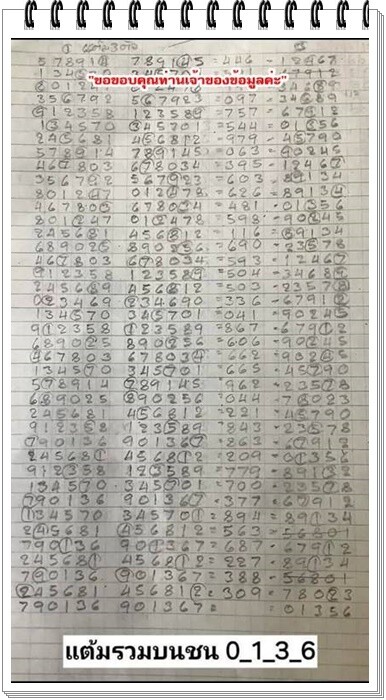 ① แต้ม3ตัว
578914 789145 = 446 - 12467
"ขอขอบคุณท่านเจ้าของข้อมูลค่ะ"
356792 567923 = 097 - 34689
912358 123589 = 757 - 67912
134570 345701 = 544 - 01356
245681 456812 979 - 45790
578914 789145 = 063 - 90245
467803 678034 = 395 - 12467
356792 567923 = 603 - 89134
801247 012478 = 626 - 89134
467803 678034 = 481 - 01356
801247 012478 = 598 - 90245
245681 456812 = 116 = 89134
689025 890256 = 690 - 23578
467803 678034 = 593 - 12467
912358 123589 = 504 - 34689
245689 456812 = 503 - 23578
023469 234690 = 336 - 67912
134570 345701 = 041 - 90245
912358 123589 = 867 - 67912
689025 890256 = 606 - 90245
467803 678034 = 662 - 90245
134570 345701 = 665 - 45790
578914 789145 = 962 - 23578
689025 890256 = 044 - 78023
245681 456812 = 221 - 45790
912358 123589 = 843 - 23578
790136 901367 = 863 - 67912
245681 456812 = 209 - 01356
912358 123589 = 779 - 89132
134570 345701 = 700 - 23578
790136 901367 = 377 - 67912
134570 345701 = 894 = 89134
245681 456812 = 563 - 56801
790136 901367 = 687 - 67912
245681 456812 = 227 - 89134
790136 901367 = 388 - 56801
245681 456812 = 309 - 78023
790136 901367 = = 01356
แต้มรวมบนชน 0_1_3_6